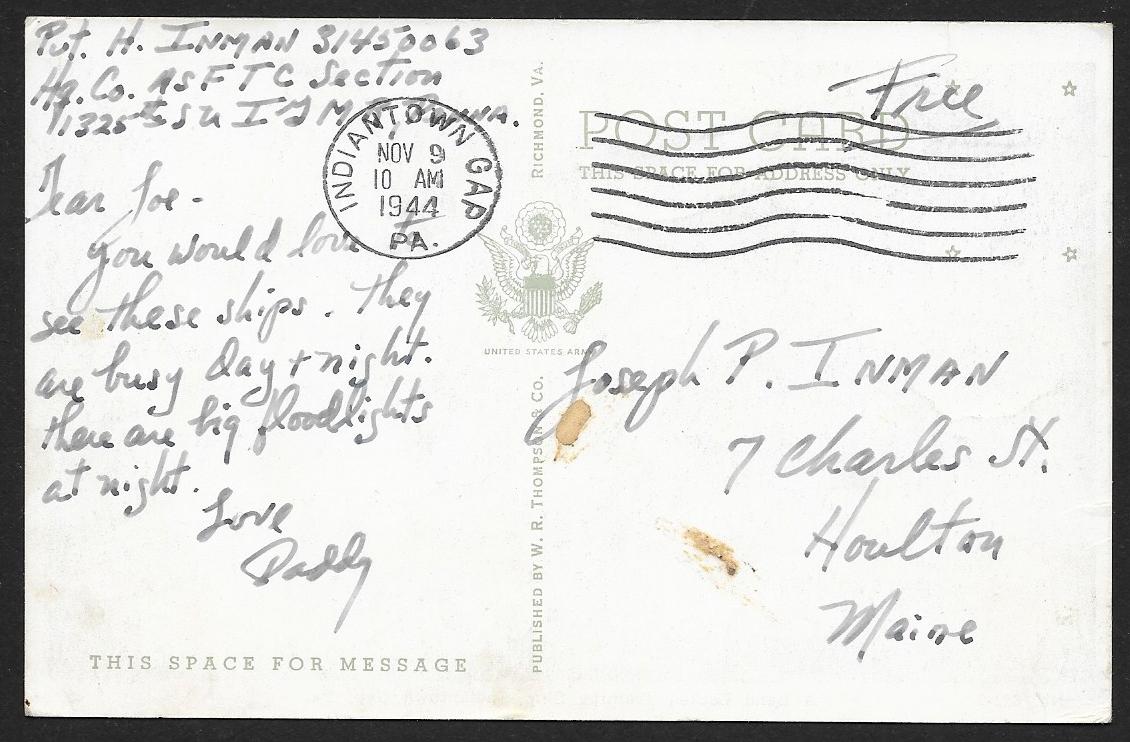 Pvt. H. INMAN 31450063
Hq. Co. ASFTC Section
1325th SU IGMR, Penna.
INDIANTOWN GAP
NOV 9
10 AM
1944
PA.
Dear Joe -
You would love to
see these ships. They
are busy day + night.
there are big floodlights
at night.
Love
Daddy
THIS SPACE FOR MESSAGE
PUBLISHED BY W. R. THOMPSON & CO. RICHMOND, VA.
UNITED STATES ARMY
Free
POST CARD
THIS SPACE FOR ADDRESS ONLY
Joseph P. INMAN
7 Charles St.
Houlton
Maine